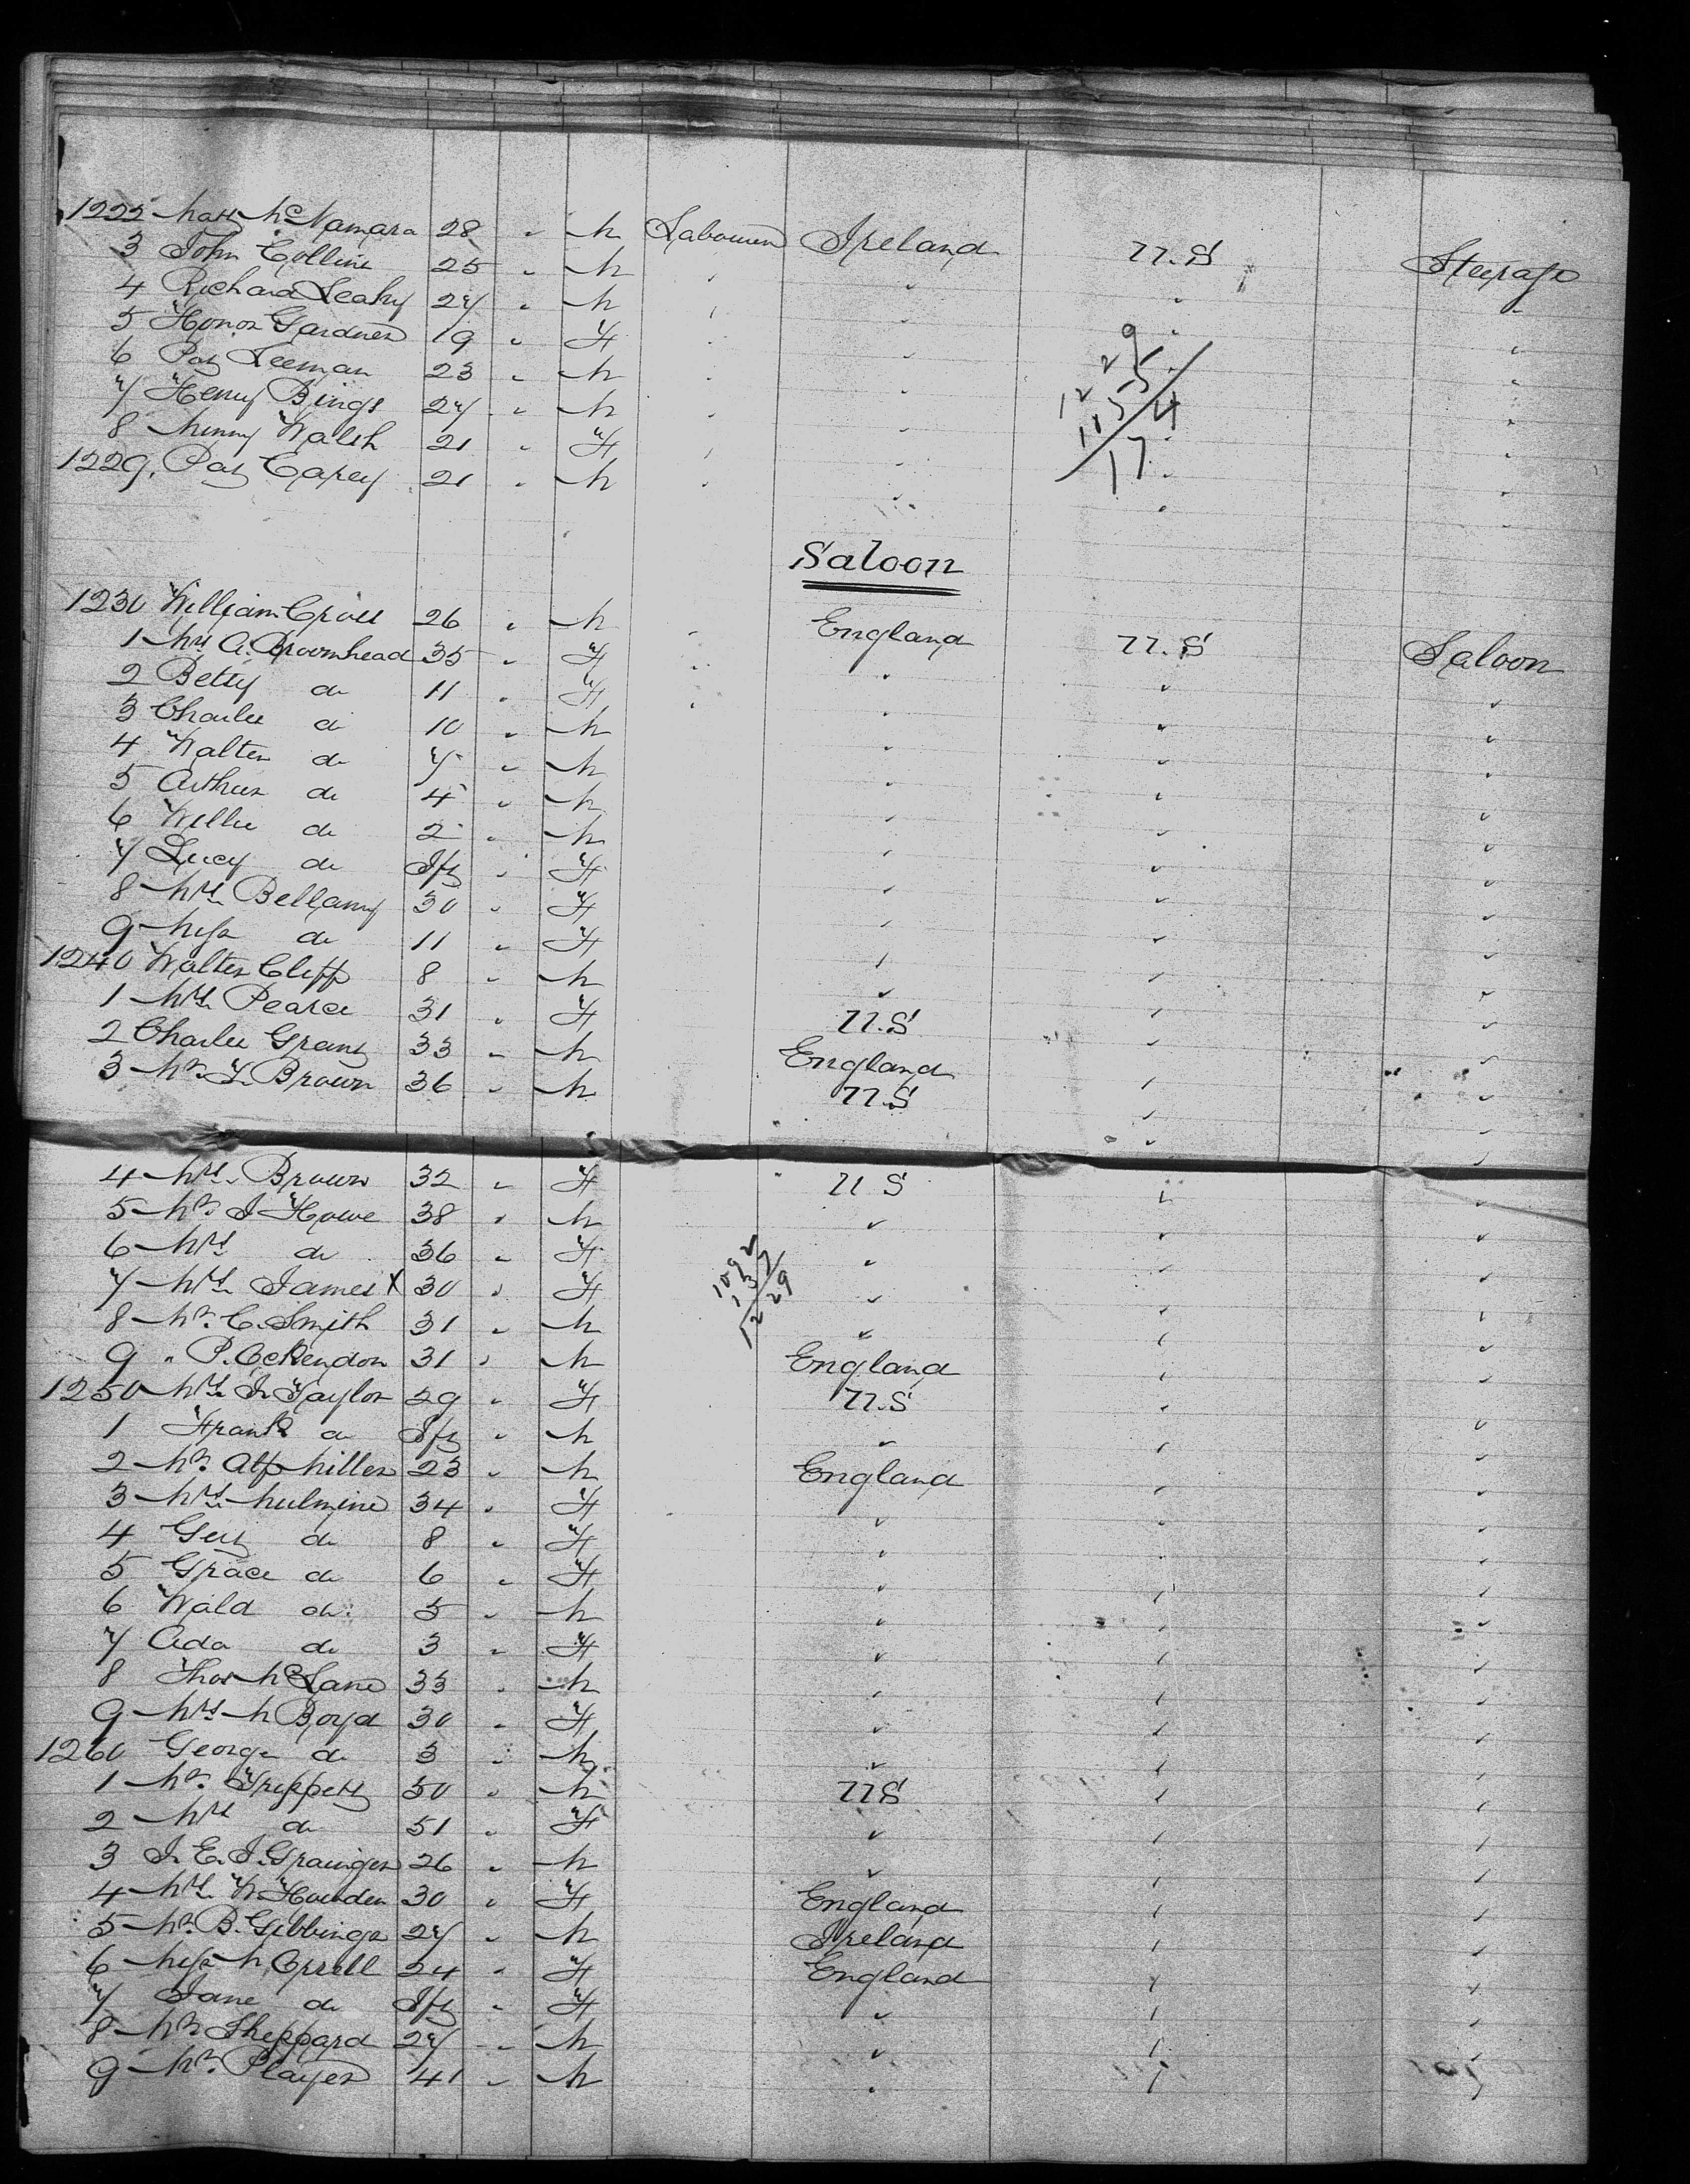 1222 Matt McNamara 28 " M Labourer Ireland U.S Steerage
3 John Collins 25 " M " " " "
4 Richard Leahy 27 " M " " " "
5 Honor Gardner 19 " F " " " "
6 Pat Leeman 23 " M " " " "
7 Henry Bings 27 " M " " " "
8 Minny Walsh 21 " F " " " "
1229. Pat Carey 21 " M " " " "
1229
1155
174
Saloon
1230 William Cross 26 " M " England U.S Saloon
1 Mrs A. Broomhead 35 " F " " " "
2 Betty do 11 " F " " " "
3 Charles do 10 " M " " "
4 Walter do 7 " M " " "
5 Arthur do 4 " M " " "
6 Willie do 2 " M " " "
7 Lucy do Inft " F " " "
8 Mrs Bellamy 30 " F " " "
9 Miss do 11 " F " " "
1240 Walter Cliff 8 " M " " "
1 Mrs Pearce 31 " F U.S " "
2 Charles Grant 33 " M England " "
3 Mr T. Brown 36 " M U.S " "
4 Mrs. Brown 32 " F U S " "
5 Mr J Howe 38 " M " " "
6 Mrs do 36 " F " " "
7 Mrs James X 30 " F " " "
8 Mr. C. Smith 31 " M " " "
1092
137
1229
9 " P. Ockendon 31 " M England " "
1250 Mrs J. Taylor 29 " F U.S " "
1 Frank do Inft " M " " "
2 Mr. Alf Miller 23 " M England " "
3 Mrs 34 " F " " "
4 Gert do 8 " F " " "
5 Grace do 6 " F " " "
6 Wald do. 5 " M " " "
7 Ada do 3 " F " " "
8 Thos McLane 33 " M " " "
9 Mrs M Boyd 30 " F " " "
1260 George do 3 " M " " "
1 Mr. Trippett 50 " M U S " "
2 Mrs do 51 " F " " "
3 J. E. J. Grainger 26 " M " " "
4 Mrs W Howden 30 " F England " "
5 Mr B. Gibbings 27 " M Ireland " "
6 Miss M Orrell 24 " F England " "
7 Jane do Inft " F " " "
8 Mr Sheppard 27 " M " " "
9 Mr. Player 41 " M " " "